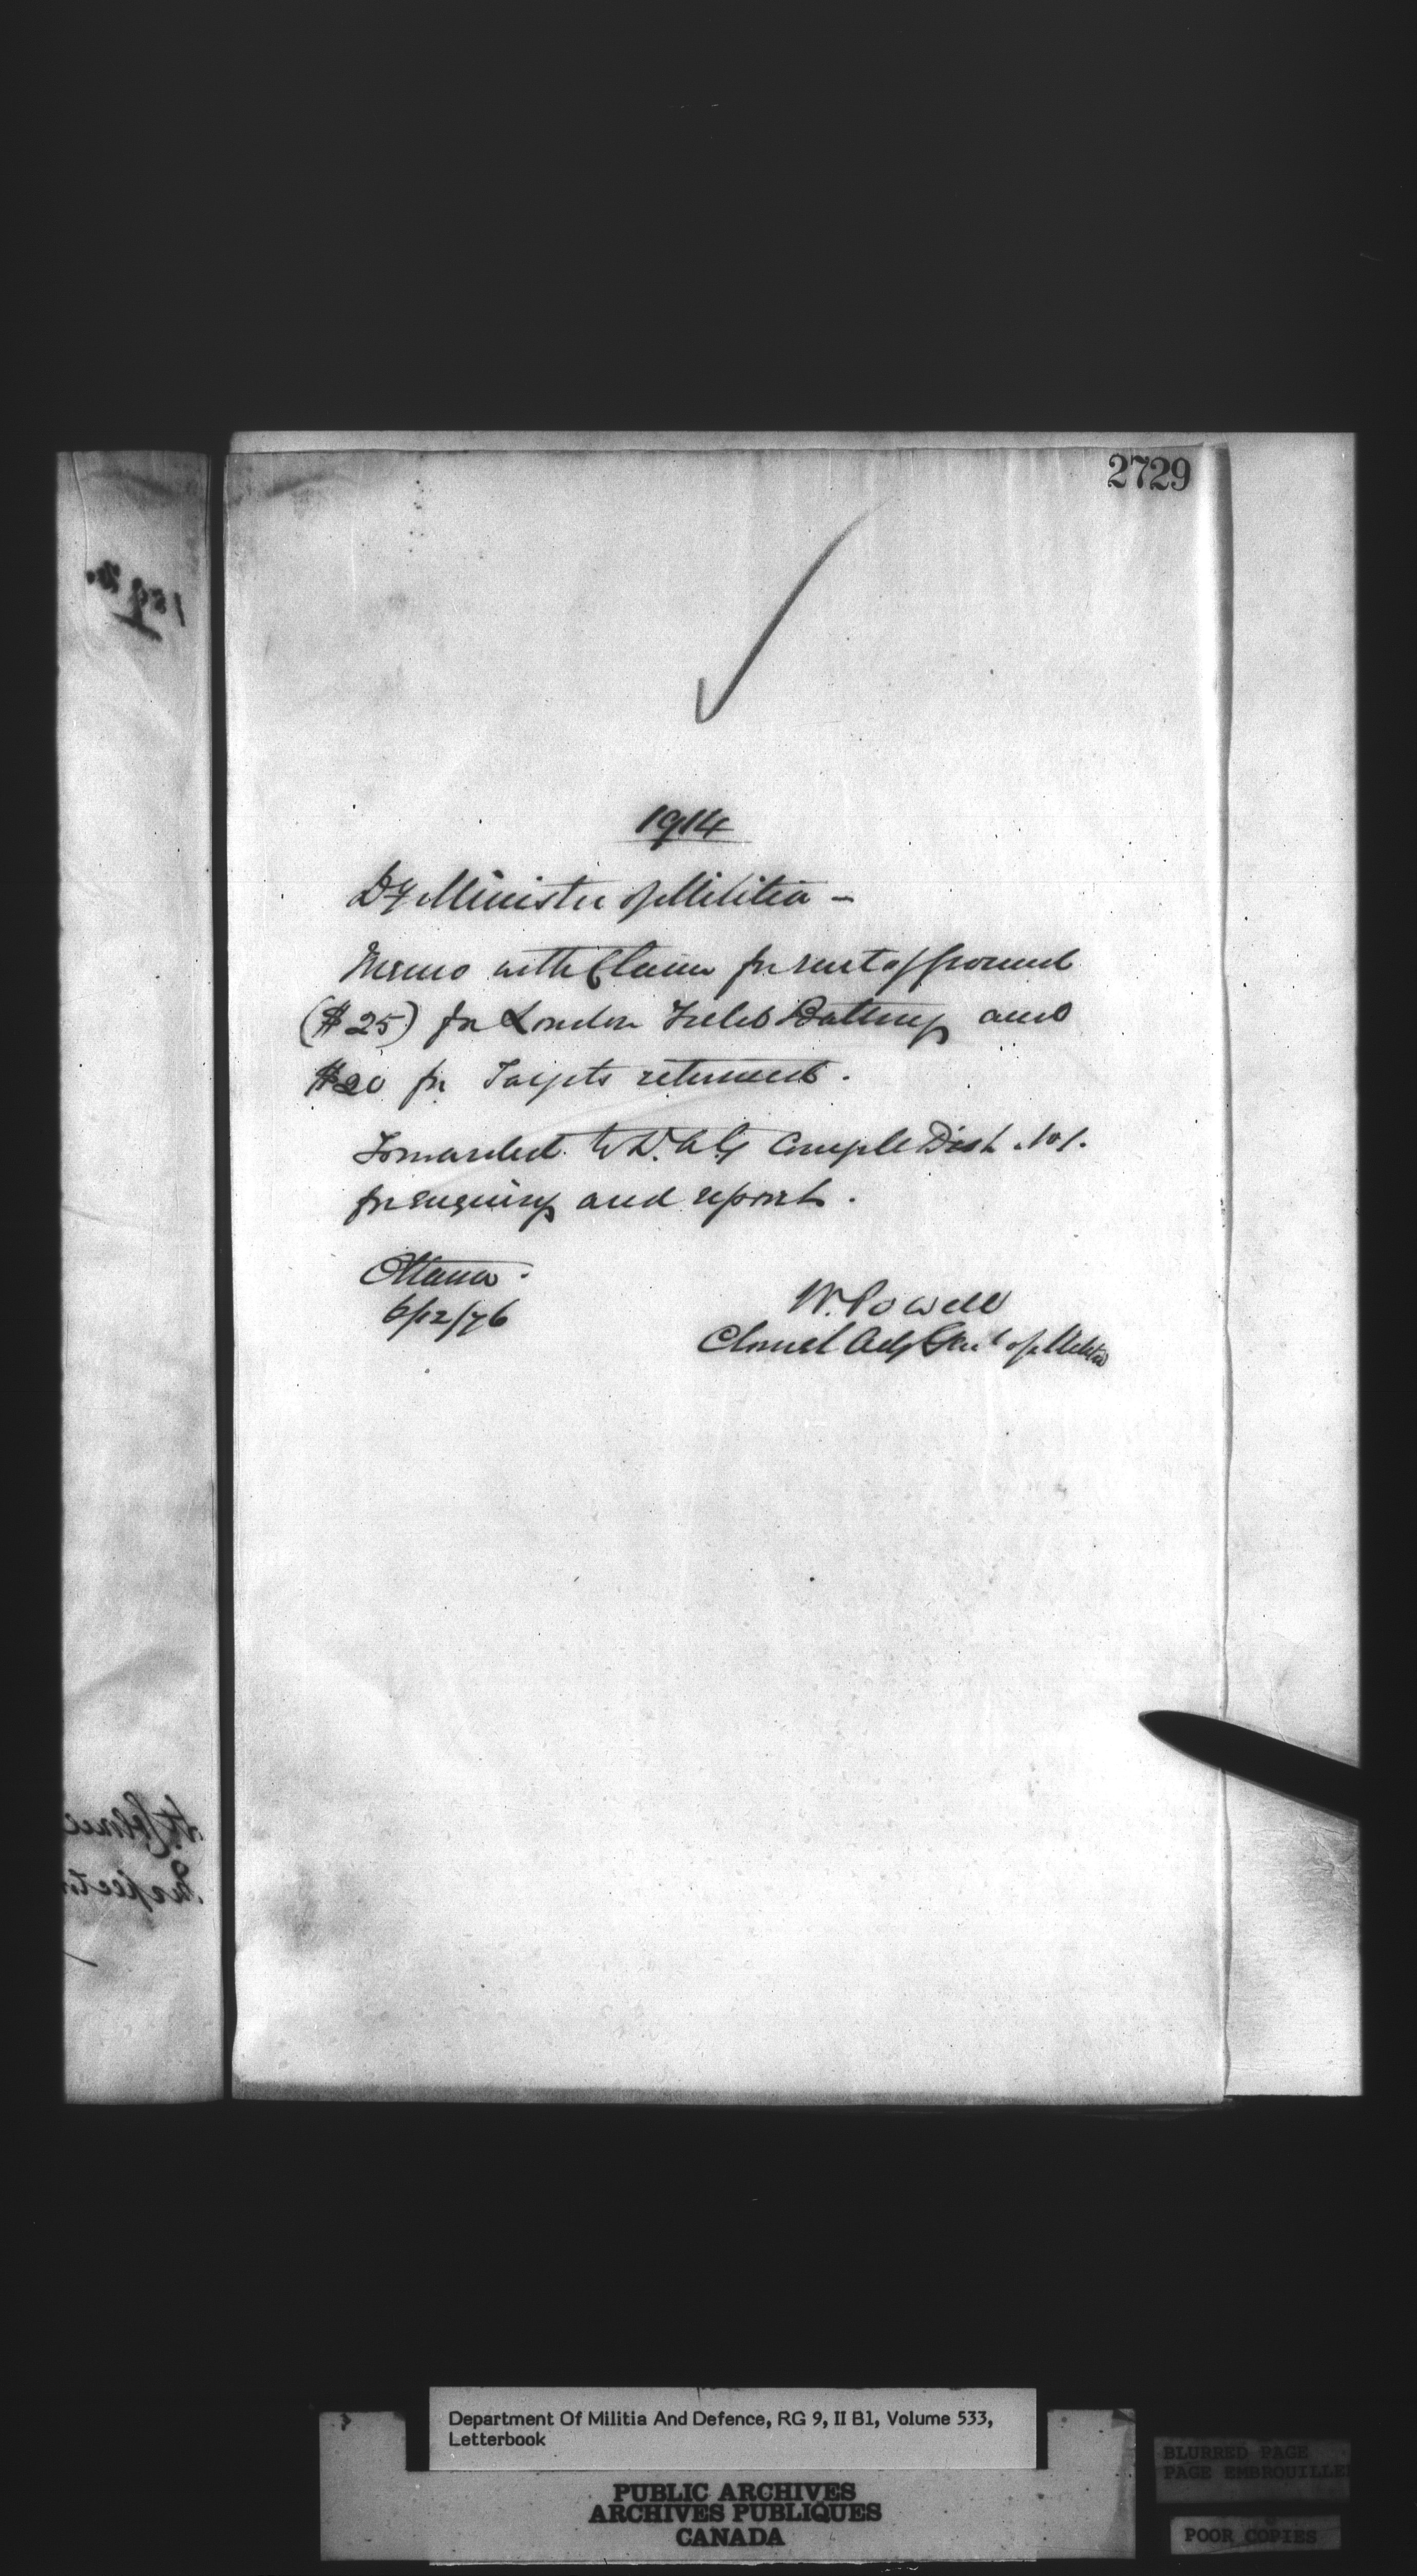 2729
1914
Dy Minister of Militia -
Memo with Claim for rent of Ground
($25) for London Field Battery and
$20 for Targets returned.
Forwarded to D.A.G. Comg Dist. No 1.
for enquiry and report.
Ottawa.
6/12/76
W. Powell
Colonel Adjt Genl of Militia
Lt. Colonel
Inspector
Department Of Militia And Defence, RG 9, II B1, Volume 533,
Letterbook
PUBLIC ARCHIVES
ARCHIVES PUBLIQUES
CANADA
BLURRED PAGE
PAGE EMBROUILLE
POOR COPIES